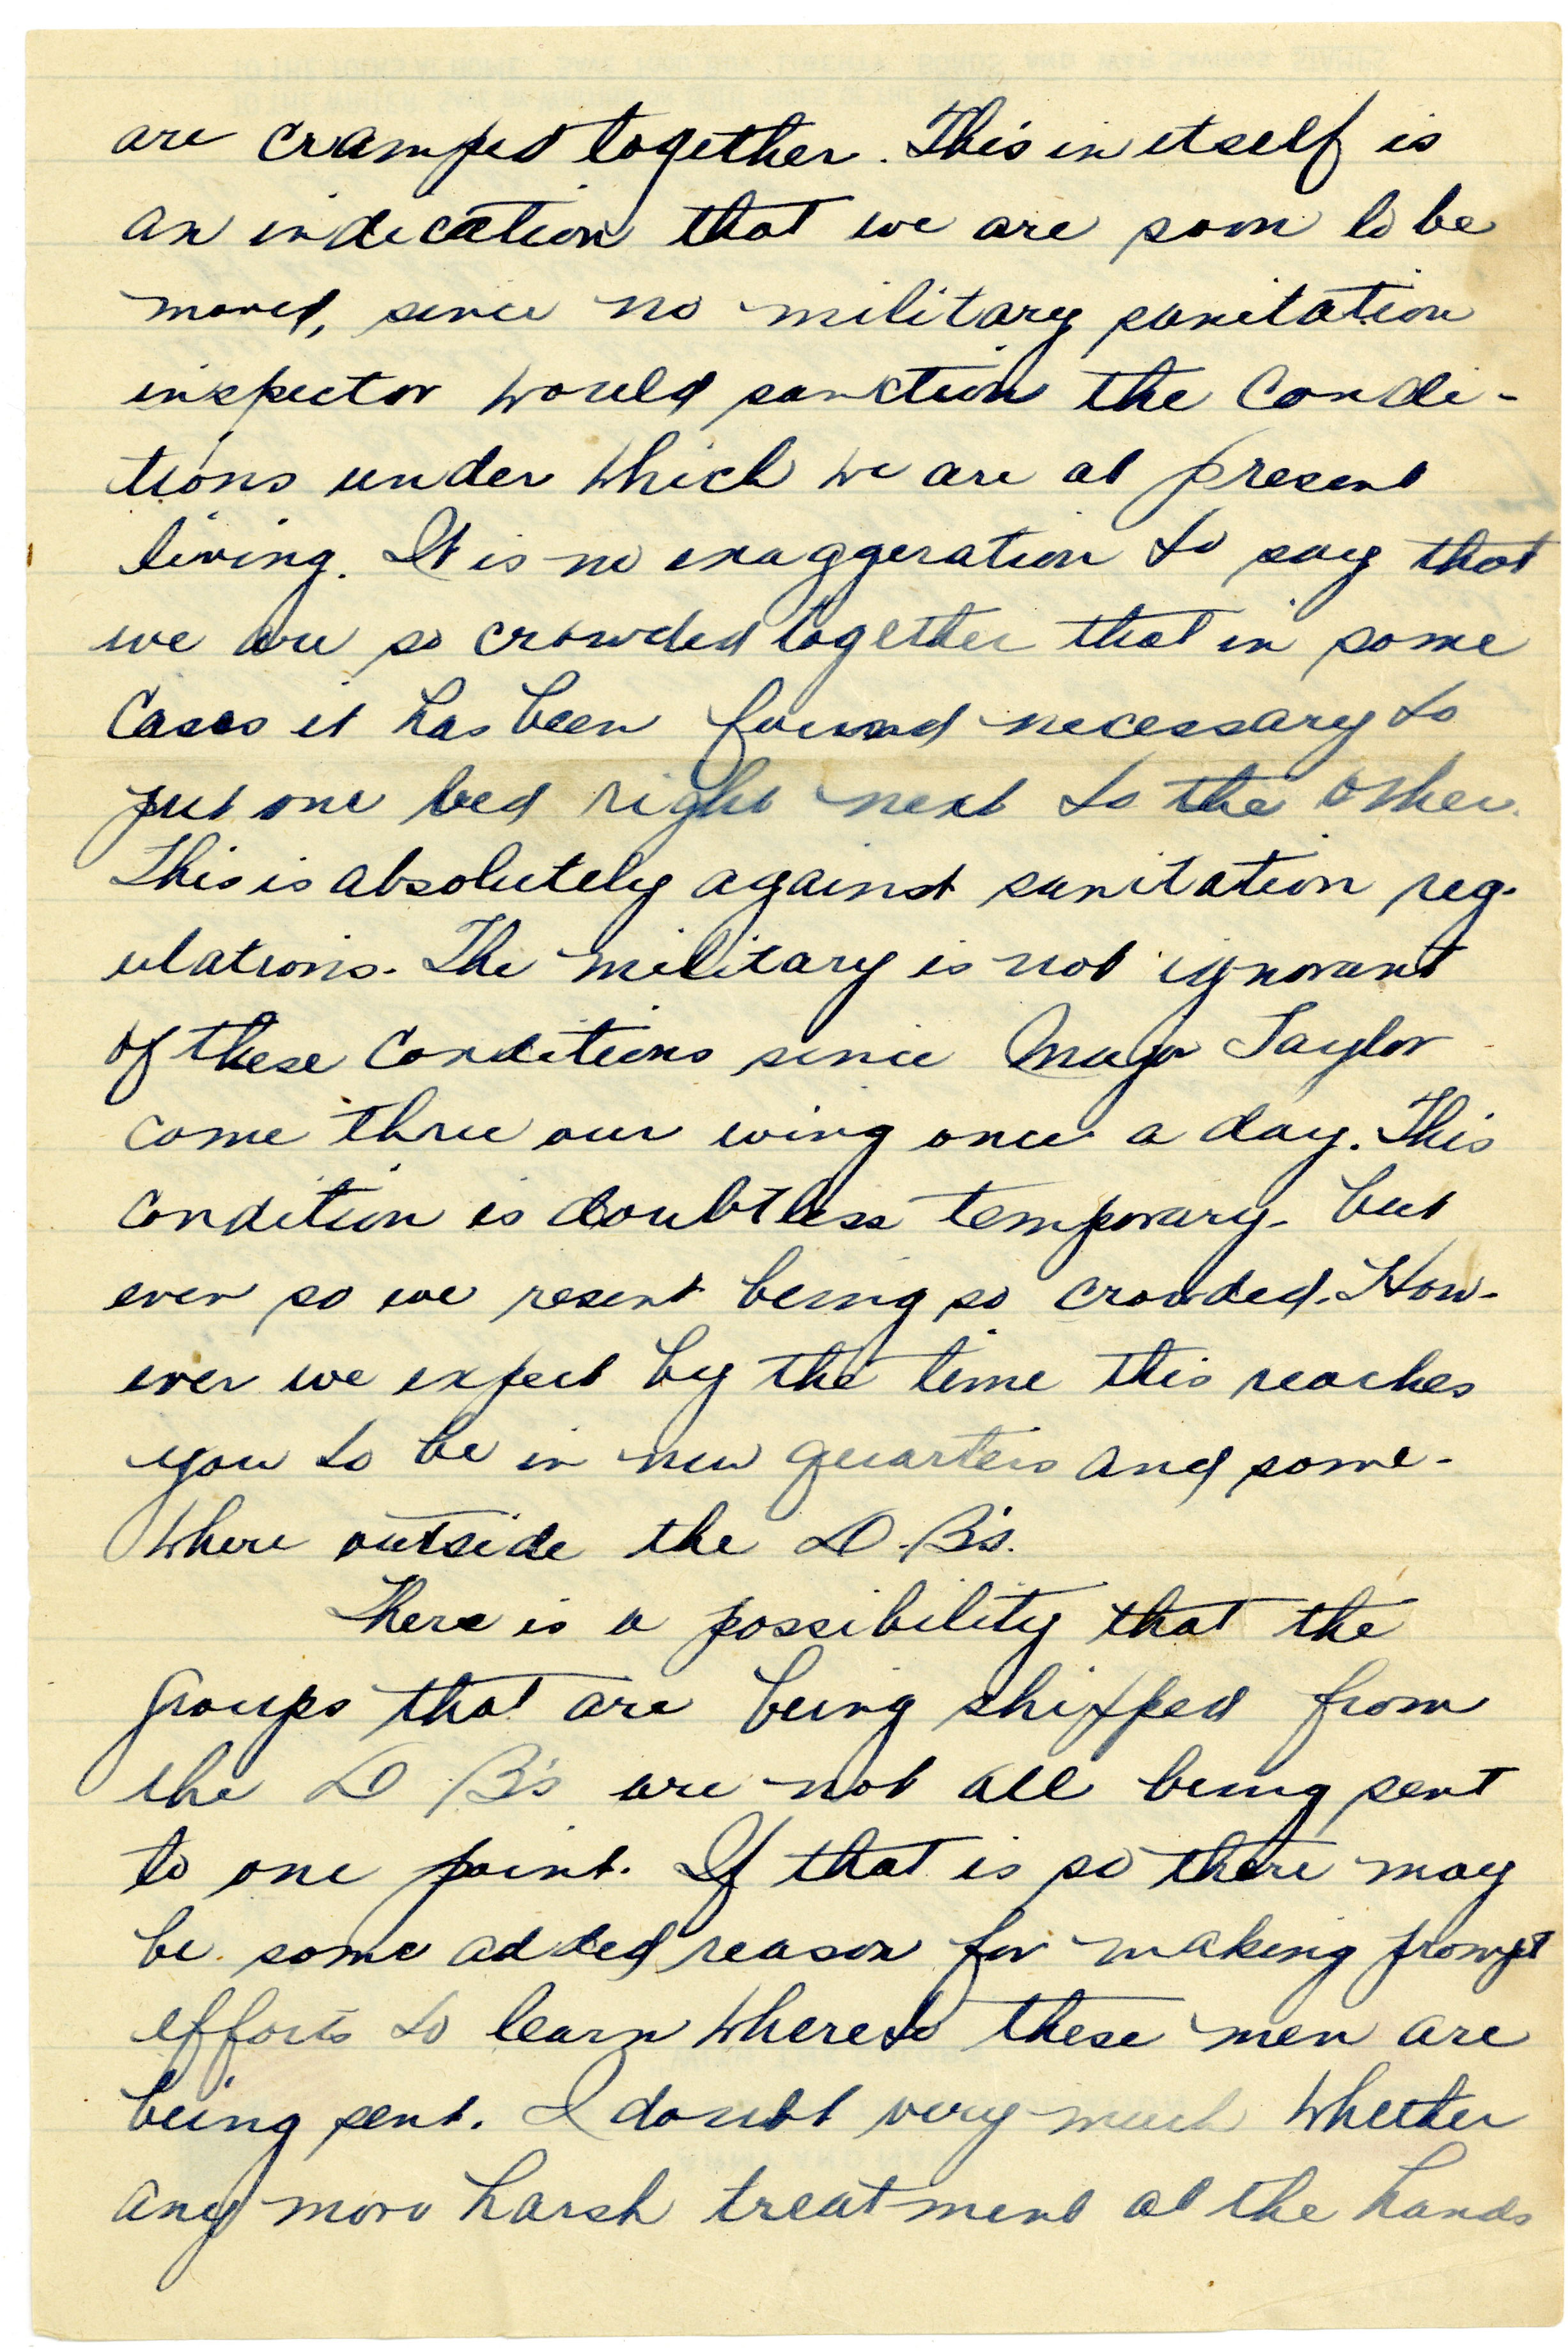 are cramped together. This in itself is
an indication that we are soon to be
moved, since no military sanitation
inspector would sanction the condi-
tions under which we are at present
living. It is no exaggeration to say that
we are so crowded together that in some
cases it has been found necessary to
put one bed right next to the other.
This is absolutely against sanitation reg-
ulations. The military is not ignorant
of these conditions since Major Taylor
come thru our wing once a day. This
condition is doubtless temporary - but
even so we resent being so crowded. How-
ever we expect by the time this reaches
you to be in new quarters and some-
where outside the D.B's.
There is a possibility that the
groups that are being shipped from
the D B's are not all being sent
to one point. If that is so there may
be some added reason for making prompt
efforts to learn whereto these men are
being sent. I doubt very much whether
any more harsh treatment at the hands